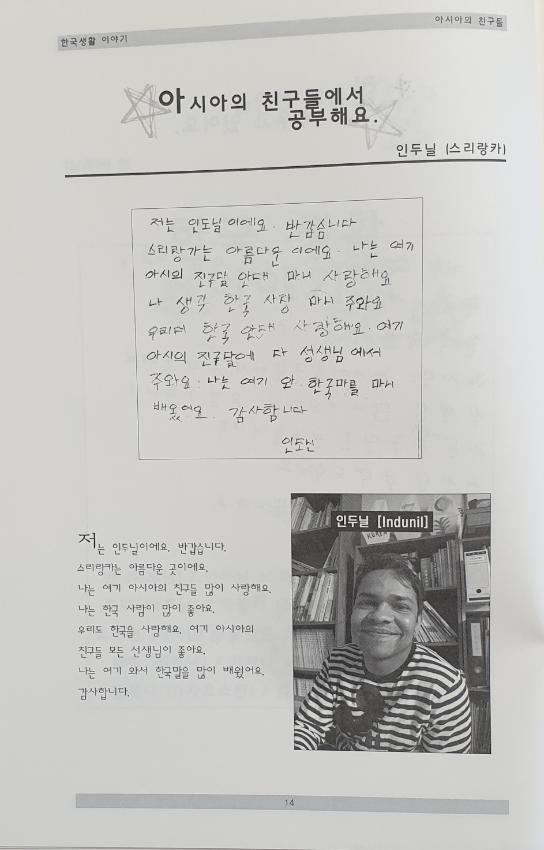 아시아의 친구들
한국생활 이야기
아시아의 친구들에서
공부해요.
인두닐 (스리랑카)
저는 인도닐이에요. 반갑습니다
스리랑가는 아름다운 이에요. 나는 여기
아시의 친구달 안대 마니 사랑해요
나 생각 한국 사장 마니 주와요
우리더 한국 안대 사랑해요. 여기
아시의 친구달에 다 성생님에서
주와요. 나는 여기 와 한국마를 마니
배웠어요. 감사합니다
인도닌
인두닐 [Indunil]
저는 인두닐이에요. 반갑습니다.
스리랑카는 아름다운 곳이에요.
나는 여기 아시아의 친구들 많이 사랑해요.
나는 한국 사람이 많이 좋아요.
우리도 한국을 사랑해요. 여기 아시아의
친구들 모든 선생님이 좋아요.
나는 여기 와서 한국말을 많이 배웠어요.
감사합니다.
14